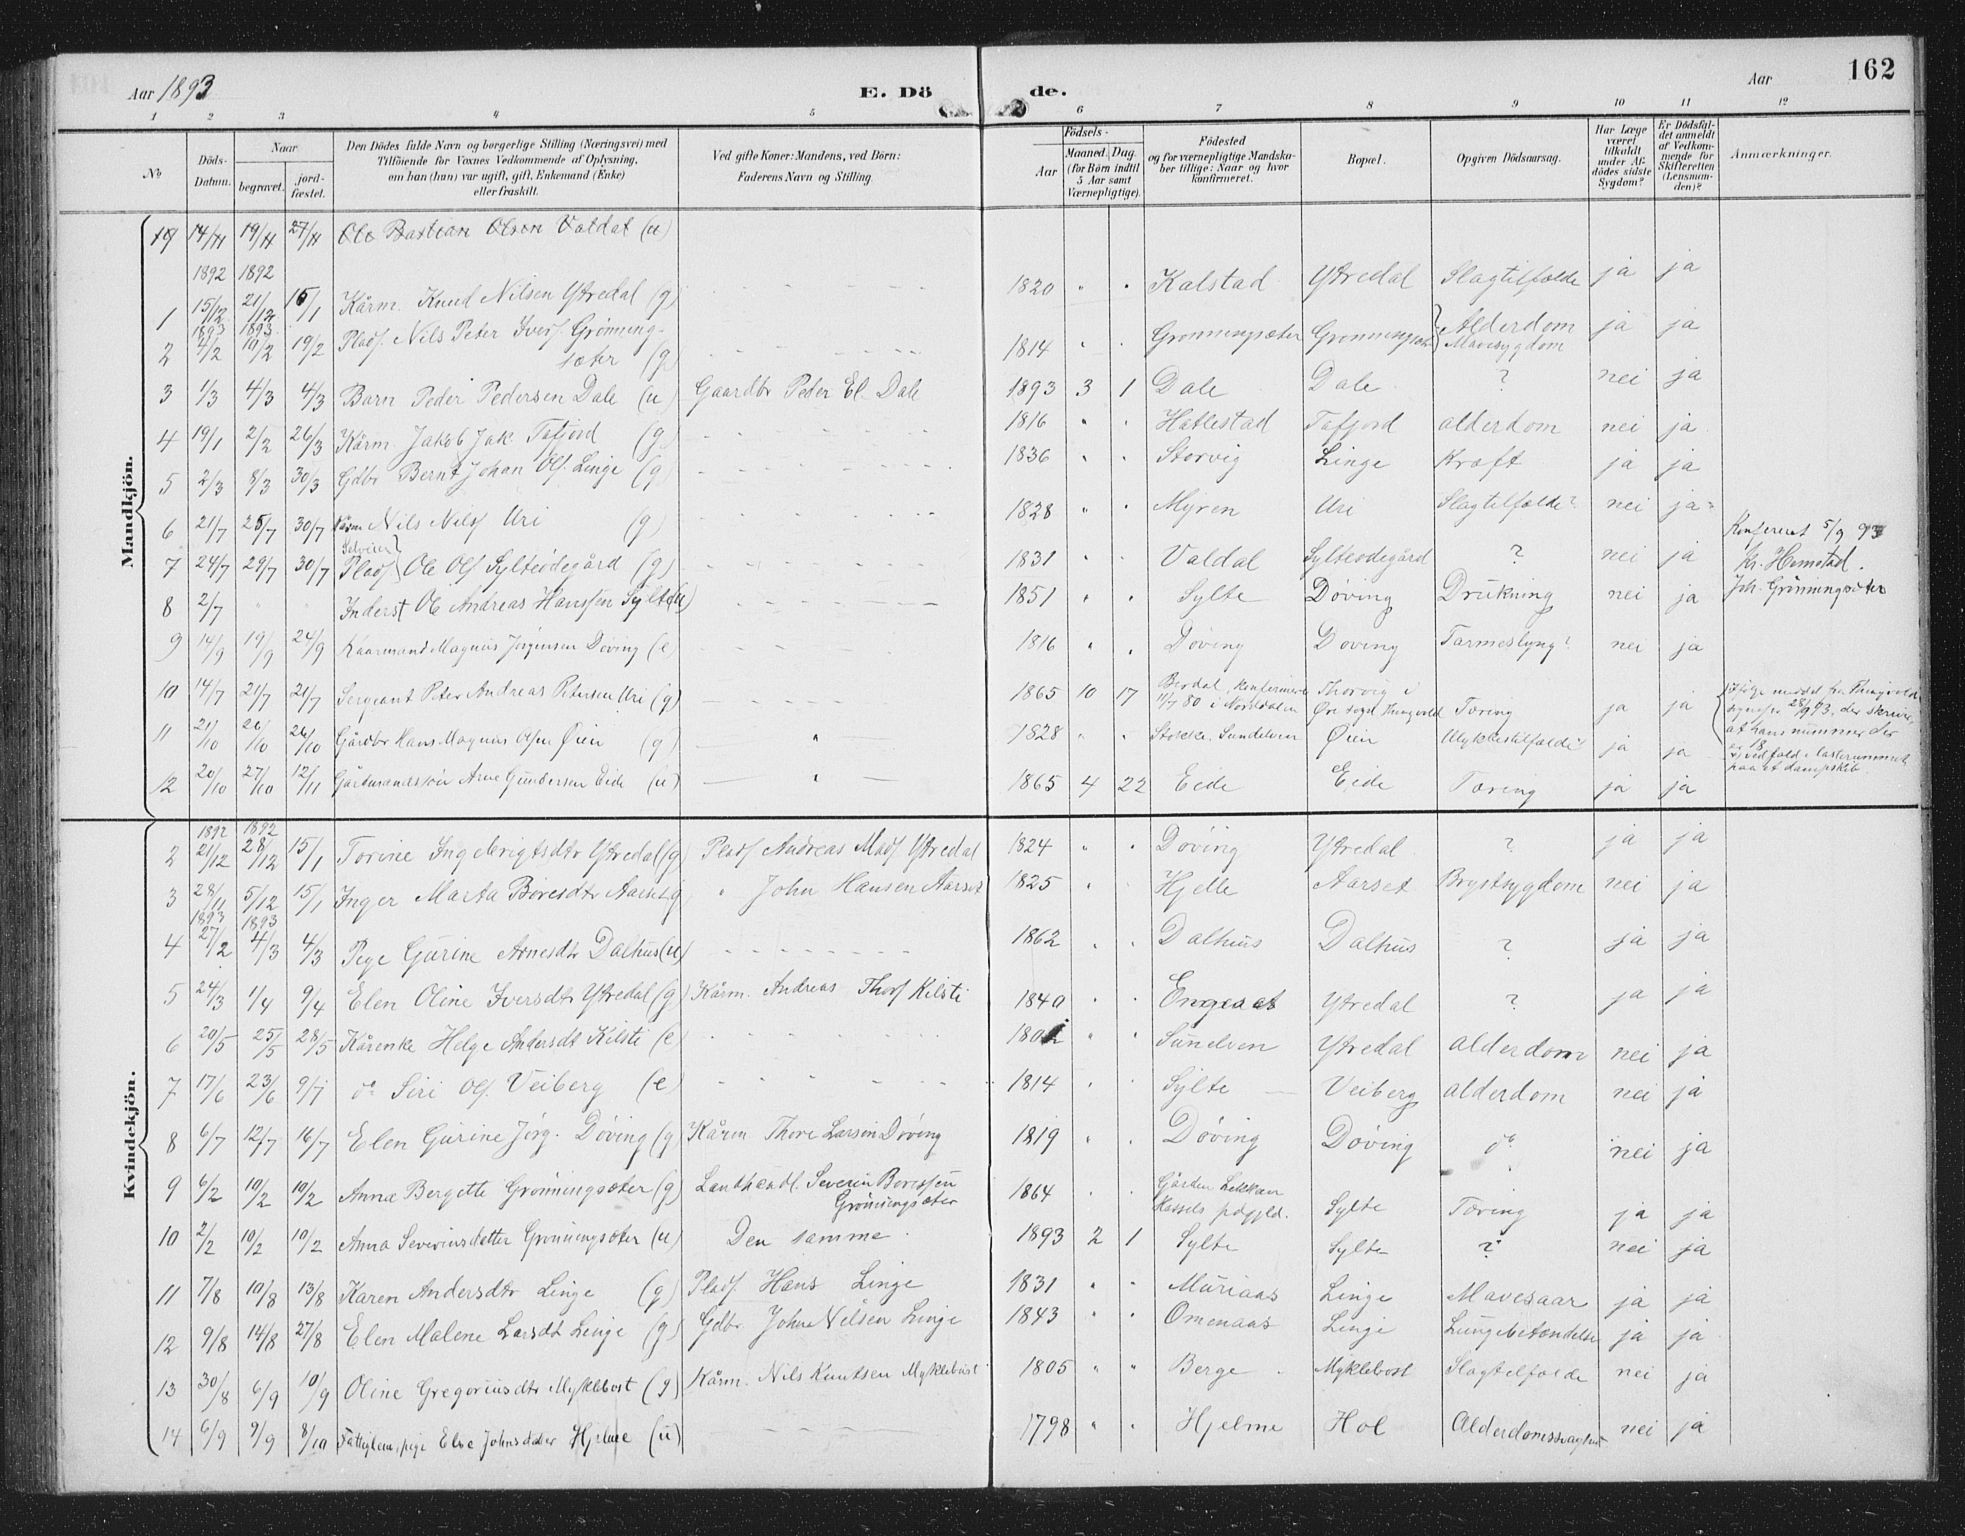 Aar 1893 E. Dö de. Aar 162
1 2 3 4 5 6 7 8 9 10 11 12
No
Döds-Datum.
Naar
begravet.
jord-fæstet.
Den Dödes fulde Navn og borgerlige Stilling (Næringsvei) med
Tilföiende för Voxnes Vedkommende af Oplysning,
om han (hun) var ugift, gift, Enkemand (Enke)
eller fraskilt.
Ved gifte Koner: Mandens, ved Börn:
Faderens Navn og Stilling.
Födsels-
Aar
Maaned. Dag.
(for Børn indtil
5 Aar samt
Værnepligtige).
Födested
og for værnepligtige Mandska-
ber tillige: Naar og hvor
konfirmeret.
Bopæl.
Opgiven Dödsaarsag.
Har Læge
været
tilkaldt
under Af-
dödes sidste
Sygdom?
Er Dödsfal-
det anmeldt
af Vedkom-
mende for
Skifteretten
(Lensman-
den)?
Anmærkninger.
Mandkjön.
19 14/11 19/11 27/11 Ole Bastian Olsen Valdal (u)
1892 1892
1 15/12 21/12 15/1 Kårm. Knud Nilsen Ytredal (g) 1820 " " Kalstad Ytredal Slagtilfælde ja ja
1893 1893
2 4/2 10/2 19/2 Plads. Nils Peter Ivers. Grønning-
sæter (g) 1814 Grønningsæter Grønningsæter Alderdom ja ja
Mavesygdom
3 1/3 4/3 4/3 Barn Peder Pedersen Dale (u) Gaardbr Peder El. Dale 1893 3 1 Dale Dale ? nei ja
4 19/1 2/2 26/3 Kårm. Jakob Jak. Tafjord (g) 1816 " " Hatlestad Tafjord alderdom nei ja
5 2/3 8/3 30/3 Gdbr Bernt Johan Ols. Linge (g) 1836 " " Storvig Linge Kræft ja ja
6 21/7 25/7 30/7 Kårm Nils Nils. Uri (g) 1828 " " Myren Uri Slagtilfælde? nei ja
Selveier
7 24/7 29/7 30/7 Plads. Ole Ols. Sylteødegård (g) 1831 " " Valdal Sylteødegård ? nei ja
Konfereret 5/9 93
Kr. Hemstad.
Joh. Grønningsæter
8 2/7 " " Inderst Ole Andreas Hanssen Sylte (u) 1851 " " Sylte Døving Drukning nei ja
9 14/9 19/9 24/9 Kaarmand Magnus Jørgensen Døving (e) 1816 " " Døving Døving Tarmeslyng? nei ja
10 14/7 21/7 21/7 Sergeant Peter Andreas Petersen Uri (g) 1865 10 17 Berdal, konfirmeret
11/7 80 i Norddalen Thorvig i
Øre sogn Thingvold Tæring ja ja
11 21/10 26/10 26/10 Gårdbr Hans Magnus Olsen Øien (g) " 1828 Stokke. Sundelven Øien Ulykkestilfælde ja ja
12 20/10 27/10 12/11 Gårdmandssøn Arne Gundersen Eide (u) " 1865 4 22 Eide Eide Tæring ja ja
Ifølge meddel. fra Thingvold
28/9 93, der skriver,
at hans nummer der
er 18
Ved fald i lasterummet
paa et dampskib
Kvindekjön.
1892 1892
2 21/12 28/12 15/1 Torine Ingebrigtsdtr Ytredal (g) Plads Andreas Mads. Ytredal 1824 " " Døving Ytredal ? ja ja
3 28/11 5/12 15/1 Inger Marta Børesdtr Aarset (g) " John Hansen Aarset 1825 " " Hjelle Aarset Brystsygdom nei ja
1893 1893
4 27/2 4/3 4/3 Pige Gurine Arnesdtr Dalhus (u) 1862 " " Dalhus Dalhus ? ja ja
5 24/3 1/4 9/4 Elen Oline Iversdtr Ytredal (g) Kårm. Andreas Thors. Kilsti 1840 " " Engeset Ytredal ? ja ja
6 20/5 25/5 28/5 Kårenke Helge Andersdt Kilsti (e) 1802 " " Sunelven Ytredal alderdom nei ja
7 17/6 23/6 9/7 do Siri Ols. Veiberg (e) 1814 " " Sylte Veiberg alderdom nei ja
8 6/7 12/7 16/7 Elen Gurine Jørg. Døving (g) Kårm Thore Larsen Døving 1819 " " Døving Døving do nei ja
9 6/2 10/2 10/2 Anna Bergette Grønningsæter (g) Landhandl. Severin Borissen
Grønningsæter 1864 " " Gården Lekkan
Hassels prdgjld. Sylte Tæring ja ja
10 2/2 10/2 10/2 Anna Severinsdatter Grønningsæter (u) Den samme. 1893 2 1 Sylte Sylte ? nei ja
11 7/8 10/8 13/8 Karen Andersdtr Linge (g) Plads. Hans Linge 1831 " " Muriaas Linge Mavesaar ja ja
12 9/8 14/8 27/8 Elen Malene Larsdt Linge (g) Gdbr John Nilsen Linge 1843 " " Omenaas Linge Lungebetændelse ja ja
13 30/8 6/9 10/9 Oline Gregoriusdtr Myklebost (g) Kårm. Nils Knutsen Myklebust 1805 " " Berge Myklebost Slagtilfælde nei ja
14 6/9 9/9 8/10 Fattiglem, pige Else Johnsdatter Hjelme (u) 1798 " " Hjelme Hol Alderdomssvaghet nei ja